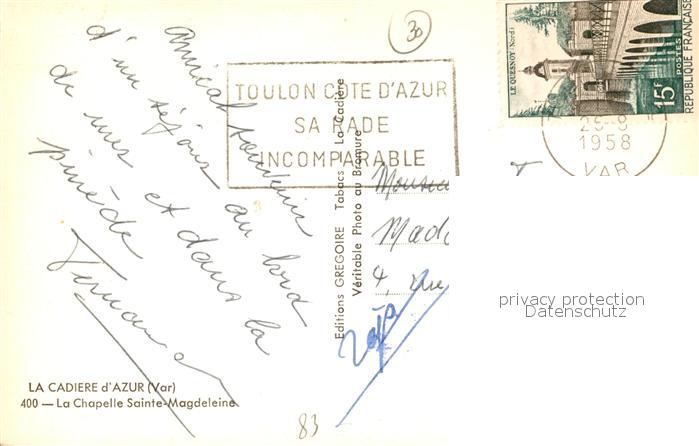 30
Amical souvenir
d'un séjour au bord
de mer et dans la
pinède
LA CADIERE d'AZUR (Var)
400 — La Chapelle Sainte-Magdeleine
TOULON COTE D'AZUR
SA RADE
INCOMPARABLE
Editions GREGOIRE Tabacs La Cadière
Véritable Photo au Bromure
LE QUESNOY (Nord)
15F
POSTES
REPUBLIQUE FRANÇAISE
1958
VAR
Mad
4, rue
privacy protection
Datenschutz
83